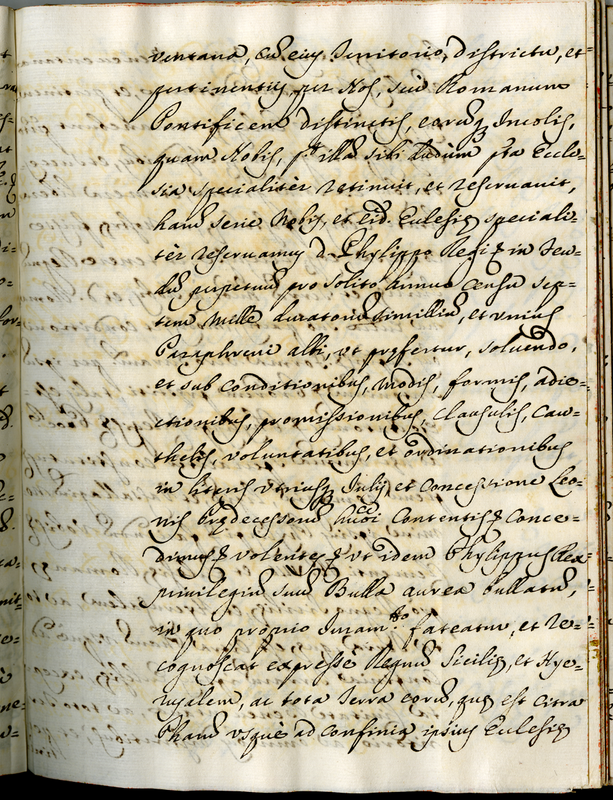 ventana, cū eius Territorio, districtu, et
pertinentijs, per Nos, seu Romanum
Pontificem distinctis, earumq; Incolis,
quam Nobis, sibi dudum pta Eccle-
sia specialitèr retinuit, et reseruauit,
harū serie Nobis, et eid. Eclesię speciali-
tèr reseruamus D. Phylippo Regi in feu-
dū perpetuū pro solito Annuo Censu sep-
tem Mille ducatorū similliū, et vnius
Paraphreni albi, vt pręfertur, soluendo,
et sub Conditionibus, modis, formis, adie-
ctionibus, promissionibus, Clausulis, Cau-
thelis, voluntatibus, et ordinationibus
in literis vtriusq; Iulij, et Concessione Leo-
nis Prędecessorū hmōi Contentis, Conce-
dimus volentes vt idem Phylippus Rex
priuilegiū suū Bulla aurea bullatū,
in quo proprio Iuram.to fateatur, et re-
cognoscat expresse Regnū Sicilię, et Hye-
rusalem, ac tota Terra eorū, quę est Citra
Pharū vsquè ad Confinia ipsius Eclesię